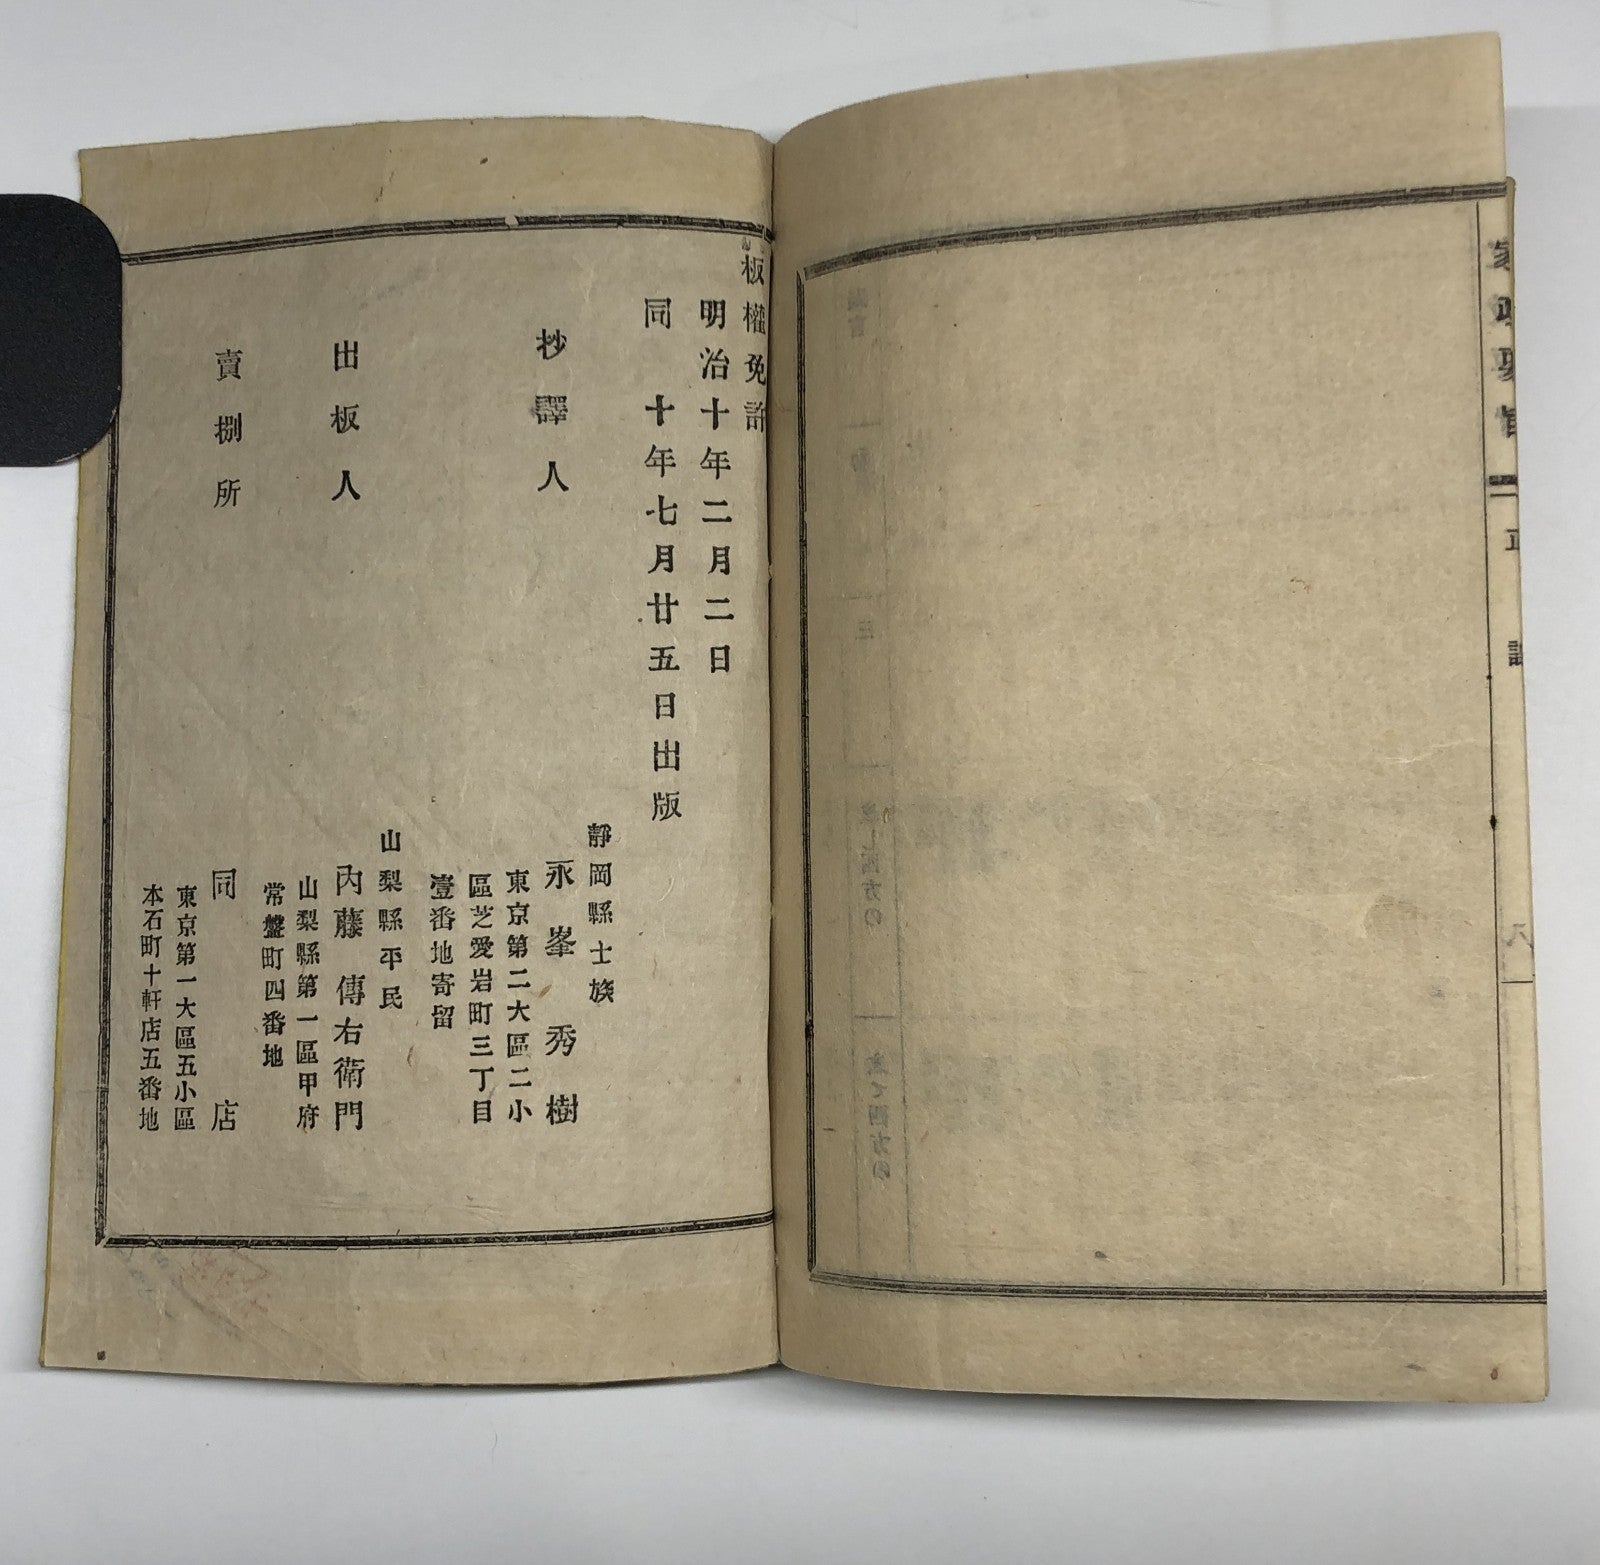 家政要旨
正誤
八
板權免許
明治十年二月二日
同十年七月廿五日出版
抄譯人
靜岡縣士族
永峯秀樹
東京第二大區二小
區芝愛岩町三丁目
壹番地寄留
出板人
山梨縣平民
内藤傳右衛門
山梨縣第一區甲府
常盤町四番地
賣捌所
同店
東京第一大區五小區
本石町十軒店五番地